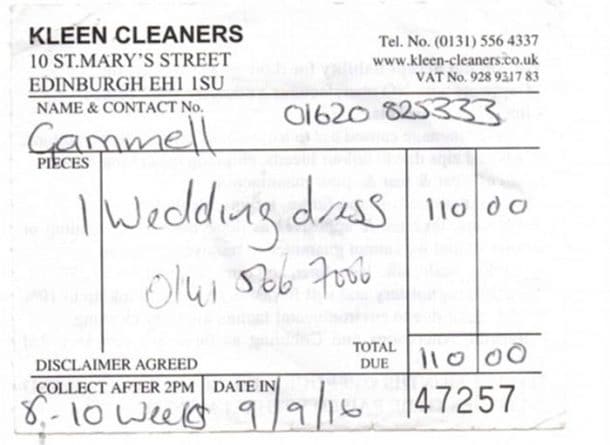 KLEEN CLEANERS
10 ST.MARY'S STREET
EDINBURGH EH1 1SU
Tel. No. (0131) 556 4337
www.kleen-cleaners.co.uk
VAT No. 928 9317 83
NAME & CONTACT No.
01620 825333
Gammell
PIECES
1 Wedding dress 110 00
0141 566 7000
DISCLAIMER AGREED
TOTAL DUE 110 00
COLLECT AFTER 2PM
8-10 Weeks
DATE IN
9/9/16
47257